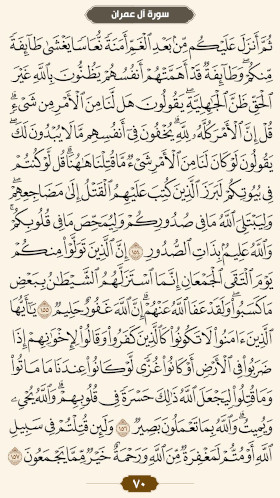 سورة آل عمران
ثُمَّ أَنزَلَ عَلَيْكُم مِّنۢ بَعْدِ ٱلْغَمِّ أَمَنَةً نُّعَاسًا يَغْشَىٰ طَآئِفَةً
مِّنكُمْ ۖ وَطَآئِفَةٌ قَدْ أَهَمَّتْهُمْ أَنفُسُهُمْ يَظُنُّونَ بِٱللَّهِ غَيْرَ
ٱلْحَقِّ ظَنَّ ٱلْجَـٰهِلِيَّةِ ۖ يَقُولُونَ هَل لَّنَا مِنَ ٱلْأَمْرِ مِن شَىْءٍ ۗ
قُلْ إِنَّ ٱلْأَمْرَ كُلَّهُۥ لِلَّهِ ۗ يُخْفُونَ فِىٓ أَنفُسِهِم مَّا لَا يُبْدُونَ لَكَ ۖ
يَقُولُونَ لَوْ كَانَ لَنَا مِنَ ٱلْأَمْرِ شَىْءٌ مَّا قُتِلْنَا هَـٰهُنَا ۗ قُل لَّوْ كُنتُمْ
فِى بُيُوتِكُمْ لَبَرَزَ ٱلَّذِينَ كُتِبَ عَلَيْهِمُ ٱلْقَتْلُ إِلَىٰ مَضَاجِعِهِمْ ۖ
وَلِيَبْتَلِىَ ٱللَّهُ مَا فِى صُدُورِكُمْ وَلِيُمَحِّصَ مَا فِى قُلُوبِكُمْ ۗ
وَٱللَّهُ عَلِيمٌۢ بِذَاتِ ٱلصُّدُورِ ١٥٤ إِنَّ ٱلَّذِينَ تَوَلَّوْا۟ مِنكُمْ
يَوْمَ ٱلْتَقَى ٱلْجَمْعَانِ إِنَّمَا ٱسْتَزَلَّهُمُ ٱلشَّيْطَـٰنُ بِبَعْضِ
مَا كَسَبُوا۟ ۖ وَلَقَدْ عَفَا ٱللَّهُ عَنْهُمْ ۗ إِنَّ ٱللَّهَ غَفُورٌ حَلِيمٌ ١٥٥ يَـٰٓأَيُّهَا
ٱلَّذِينَ ءَامَنُوا۟ لَا تَكُونُوا۟ كَٱلَّذِينَ كَفَرُوا۟ وَقَالُوا۟ لِإِخْوَٰنِهِمْ إِذَا
ضَرَبُوا۟ فِى ٱلْأَرْضِ أَوْ كَانُوا۟ غُزًّى لَّوْ كَانُوا۟ عِندَنَا مَا مَاتُوا۟
وَمَا قُتِلُوا۟ لِيَجْعَلَ ٱللَّهُ ذَٰلِكَ حَسْرَةً فِى قُلُوبِهِمْ ۗ وَٱللَّهُ يُحْىِۦ
وَيُمِيتُ ۗ وَٱللَّهُ بِمَا تَعْمَلُونَ بَصِيرٌ ١٥٦ وَلَئِن قُتِلْتُمْ فِى سَبِيلِ
ٱللَّهِ أَوْ مُتُّمْ لَمَغْفِرَةٌ مِّنَ ٱللَّهِ وَرَحْمَةٌ خَيْرٌ مِّمَّا يَجْمَعُونَ ١٥٧
٧٠